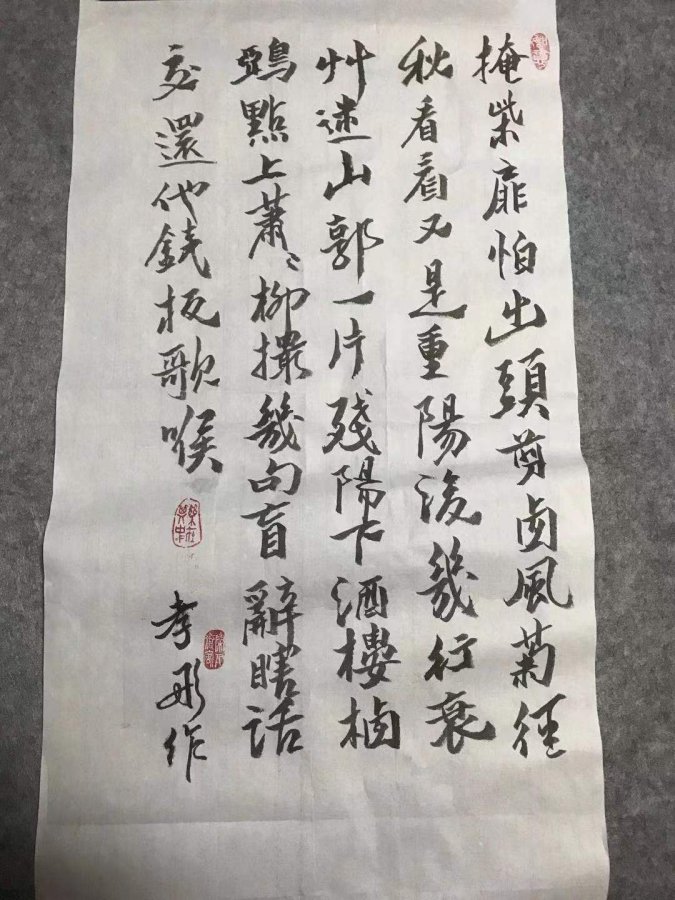 掩柴扉怕出頭剪西風菊徑
秋看看又是重陽後幾行衰
艸迷山郭一片殘陽下酒樓栖
鵶點上蕭〻柳撮幾句盲辭瞎話
交還他鐵板歌喉
孝彤作